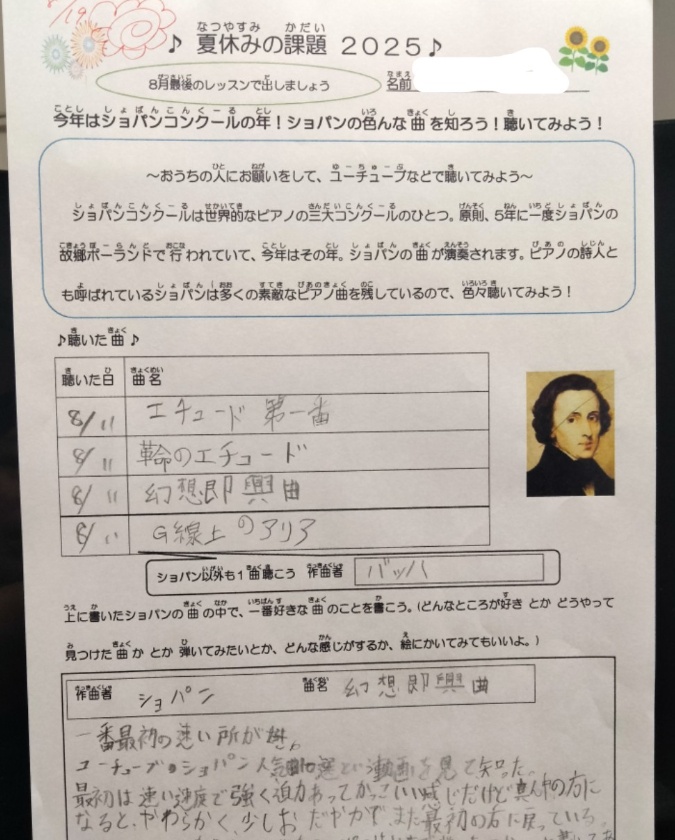 8/19
♪ 夏休みの課題 2025♪
8月最後のレッスンで出しましょう
名前
今年はショパンコンクールの年！ショパンの色んな曲を知ろう！聴いてみよう！
～おうちの人にお願いをして、ユーチューブなどで聴いてみよう～
ショパンコンクールは世界的なピアノの三大コンクールのひとつ。原則、5年に一度ショパンの
故郷ポーランドで行われていて、今年はその年。ショパンの曲が演奏されます。ピアノの詩人と
も呼ばれているショパンは多くの素敵なピアノ曲を残しているので、色々聴いてみよう！
♪聴いた曲♪
聴いた日 曲名
8/11 エチュード 第一番
8/11 革命のエチュード
8/11 幻想即興曲
8/11 G線上のアリア
ショパン以外も1曲聴こう 作曲者 バッハ
上に書いたショパンの曲の中で、一番好きな曲のことを書こう。（どんなところが好きとかどうやって
見つけた曲かとか弾いてみたいとか、どんな感じがするか、絵にかいてみてもいいよ。）
作曲者 ショパン 曲名 幻想即興曲
一番最初の速い所が
ユーチューブのショパン人気 選という動画を見て知った。
最初は速い速度で強く迫力あってかっこいい感じだけど真ん中の方に
なると、やわらかく、少しおだやかで、また最初の方に戻っている。